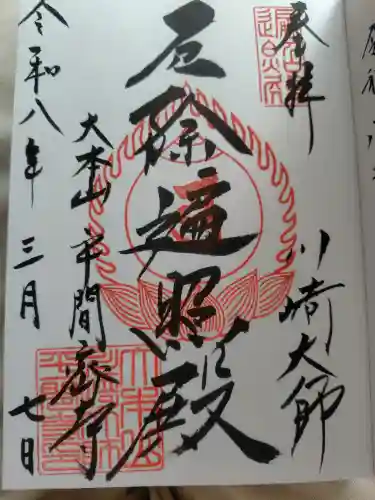 奉拝
川崎大師
厄除遍照殿
大本山平間寺
令和八年三月七日